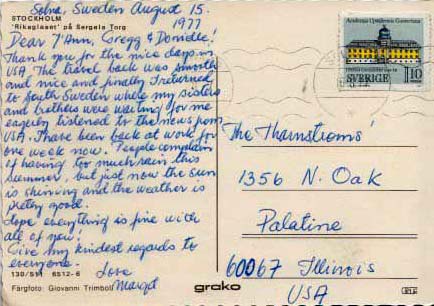 Solna, Sweden August 15.
1977
STOCKHOLM
'Rikaglaset' på Sergels Torg
Dear J'Ann, Gregg & Donielle!
Thank you for the nice days in
USA. The travel back was smooth
and nice and finally I returned
to South Sweden where my sisters
and brothers were waiting for me
eagerly listened to the news from
USA. I have been back at work for
one week now. People complain
of having too much rain this
summer, but just now the sun
is shining and the weather is
pretty good.
Hope everything is fine with
all of you!
Give my kindest regards to
everyone.
Love
Margit
130/511 6512-6
Färgfoto: Giovanni Trimboli
grako
Academia Upsaliensis Gustaviana
SVERIGE 110
The Thornstroms'
1356 N. Oak
Palatine
60067 Illinois
USA